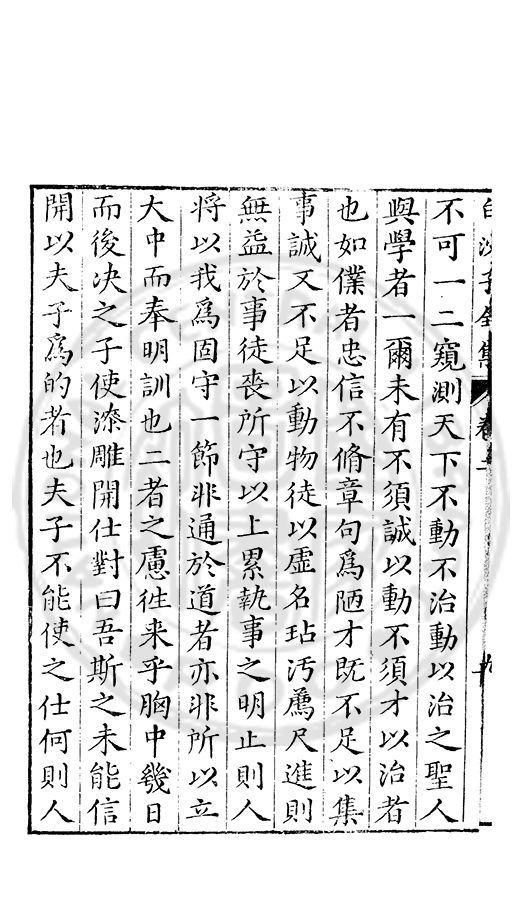 白沙子全集 卷
不可一二窺測天下不動不治動以治之聖人
與學者一爾未有不須誠以動不須才以治者
也如僕者忠信不脩章句爲陋才既不足以集
事誠又不足以動物徒以虛名玷汚薦尺進則
無益於事徒喪所守以上累執事之明止則人
將以我爲固守一節非通於道者亦非所以立
大中而奉明訓也二者之慮徃来乎胸中幾日
而後决之子使漆雕開仕對曰吾斯之未能信
開以夫子爲的者也夫子不能使之仕何則人